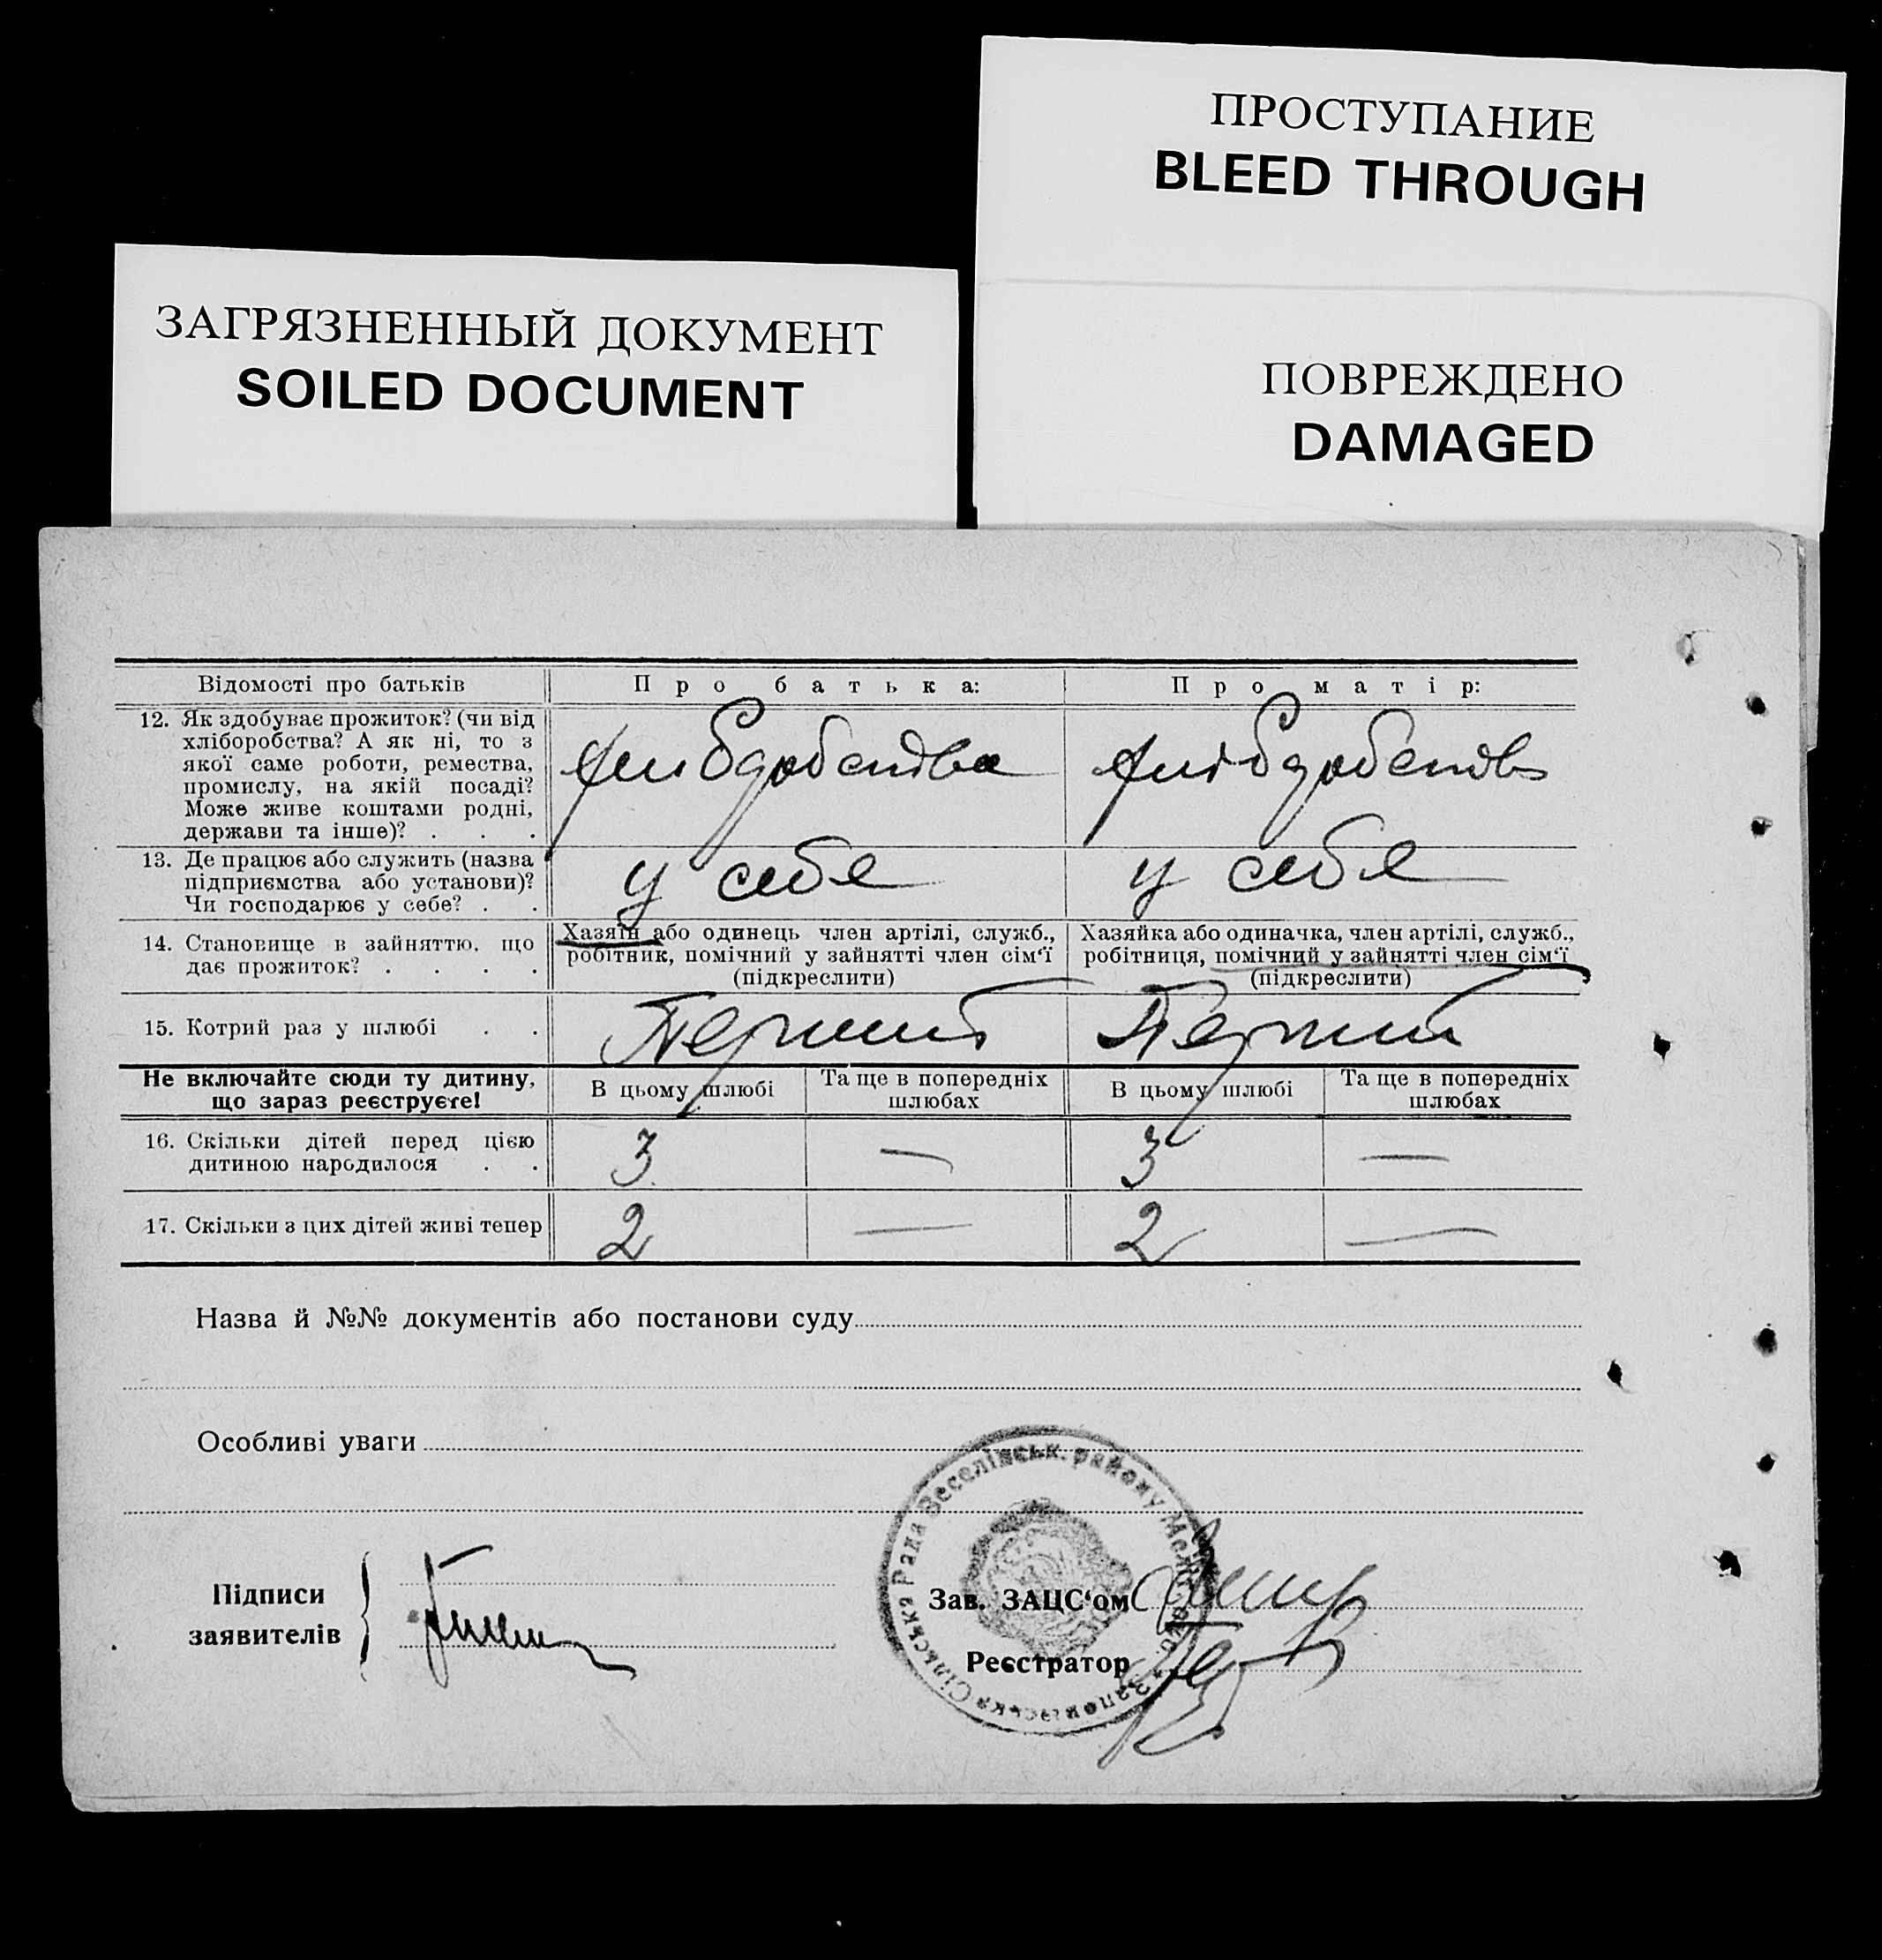 ПРОСТУПАНИЕ
BLEED THROUGH
ЗАГРЯЗНЕННЫЙ ДОКУМЕНТ
SOILED DOCUMENT
ПОВРЕЖДЕНО
DAMAGED
Відомості про батьків
Про батька:
Про матір:
12. Як здобуває прожиток? (чи від
хліборобства? А як ні, то з
якої саме роботи, ремества,
промислу, на якій посаді?
Може живе коштами родні,
держави та інше)? . . .
13. Де працює або служить (назва
підприємства або установи)?
Чи господарює у себе? . .
у себе
у себе
14. Становище в зайняттю, що
дає прожиток? . . . .
Хазяїн або одинець член артілі, служб.,
робітник, помічний у зайнятті член сім‘ї
(підкреслити)
Хазяйка або одиначка, член артілі, служб.,
робітниця, помічний у зайнятті член сім‘ї
(підкреслити)
15. Котрий раз у шлюбі . .
Перший
Перший
Не включайте сюди ту дитину,
що зараз реєструєте!
В цьому шлюбі
Та ще в попередніх
шлюбах
В цьому шлюбі
Та ще в попередніх
шлюбах
16. Скільки дітей перед цією
дитиною народилося . .
3
—
3
—
17. Скільки з цих дітей живі тепер
2
—
2
—
Назва й №№ документів або постанови суду
Особливі уваги
Сільська Рада Веселівськ. району
Підписи
заявителів
Зав. ЗАЦС‘ом
Реєстратор